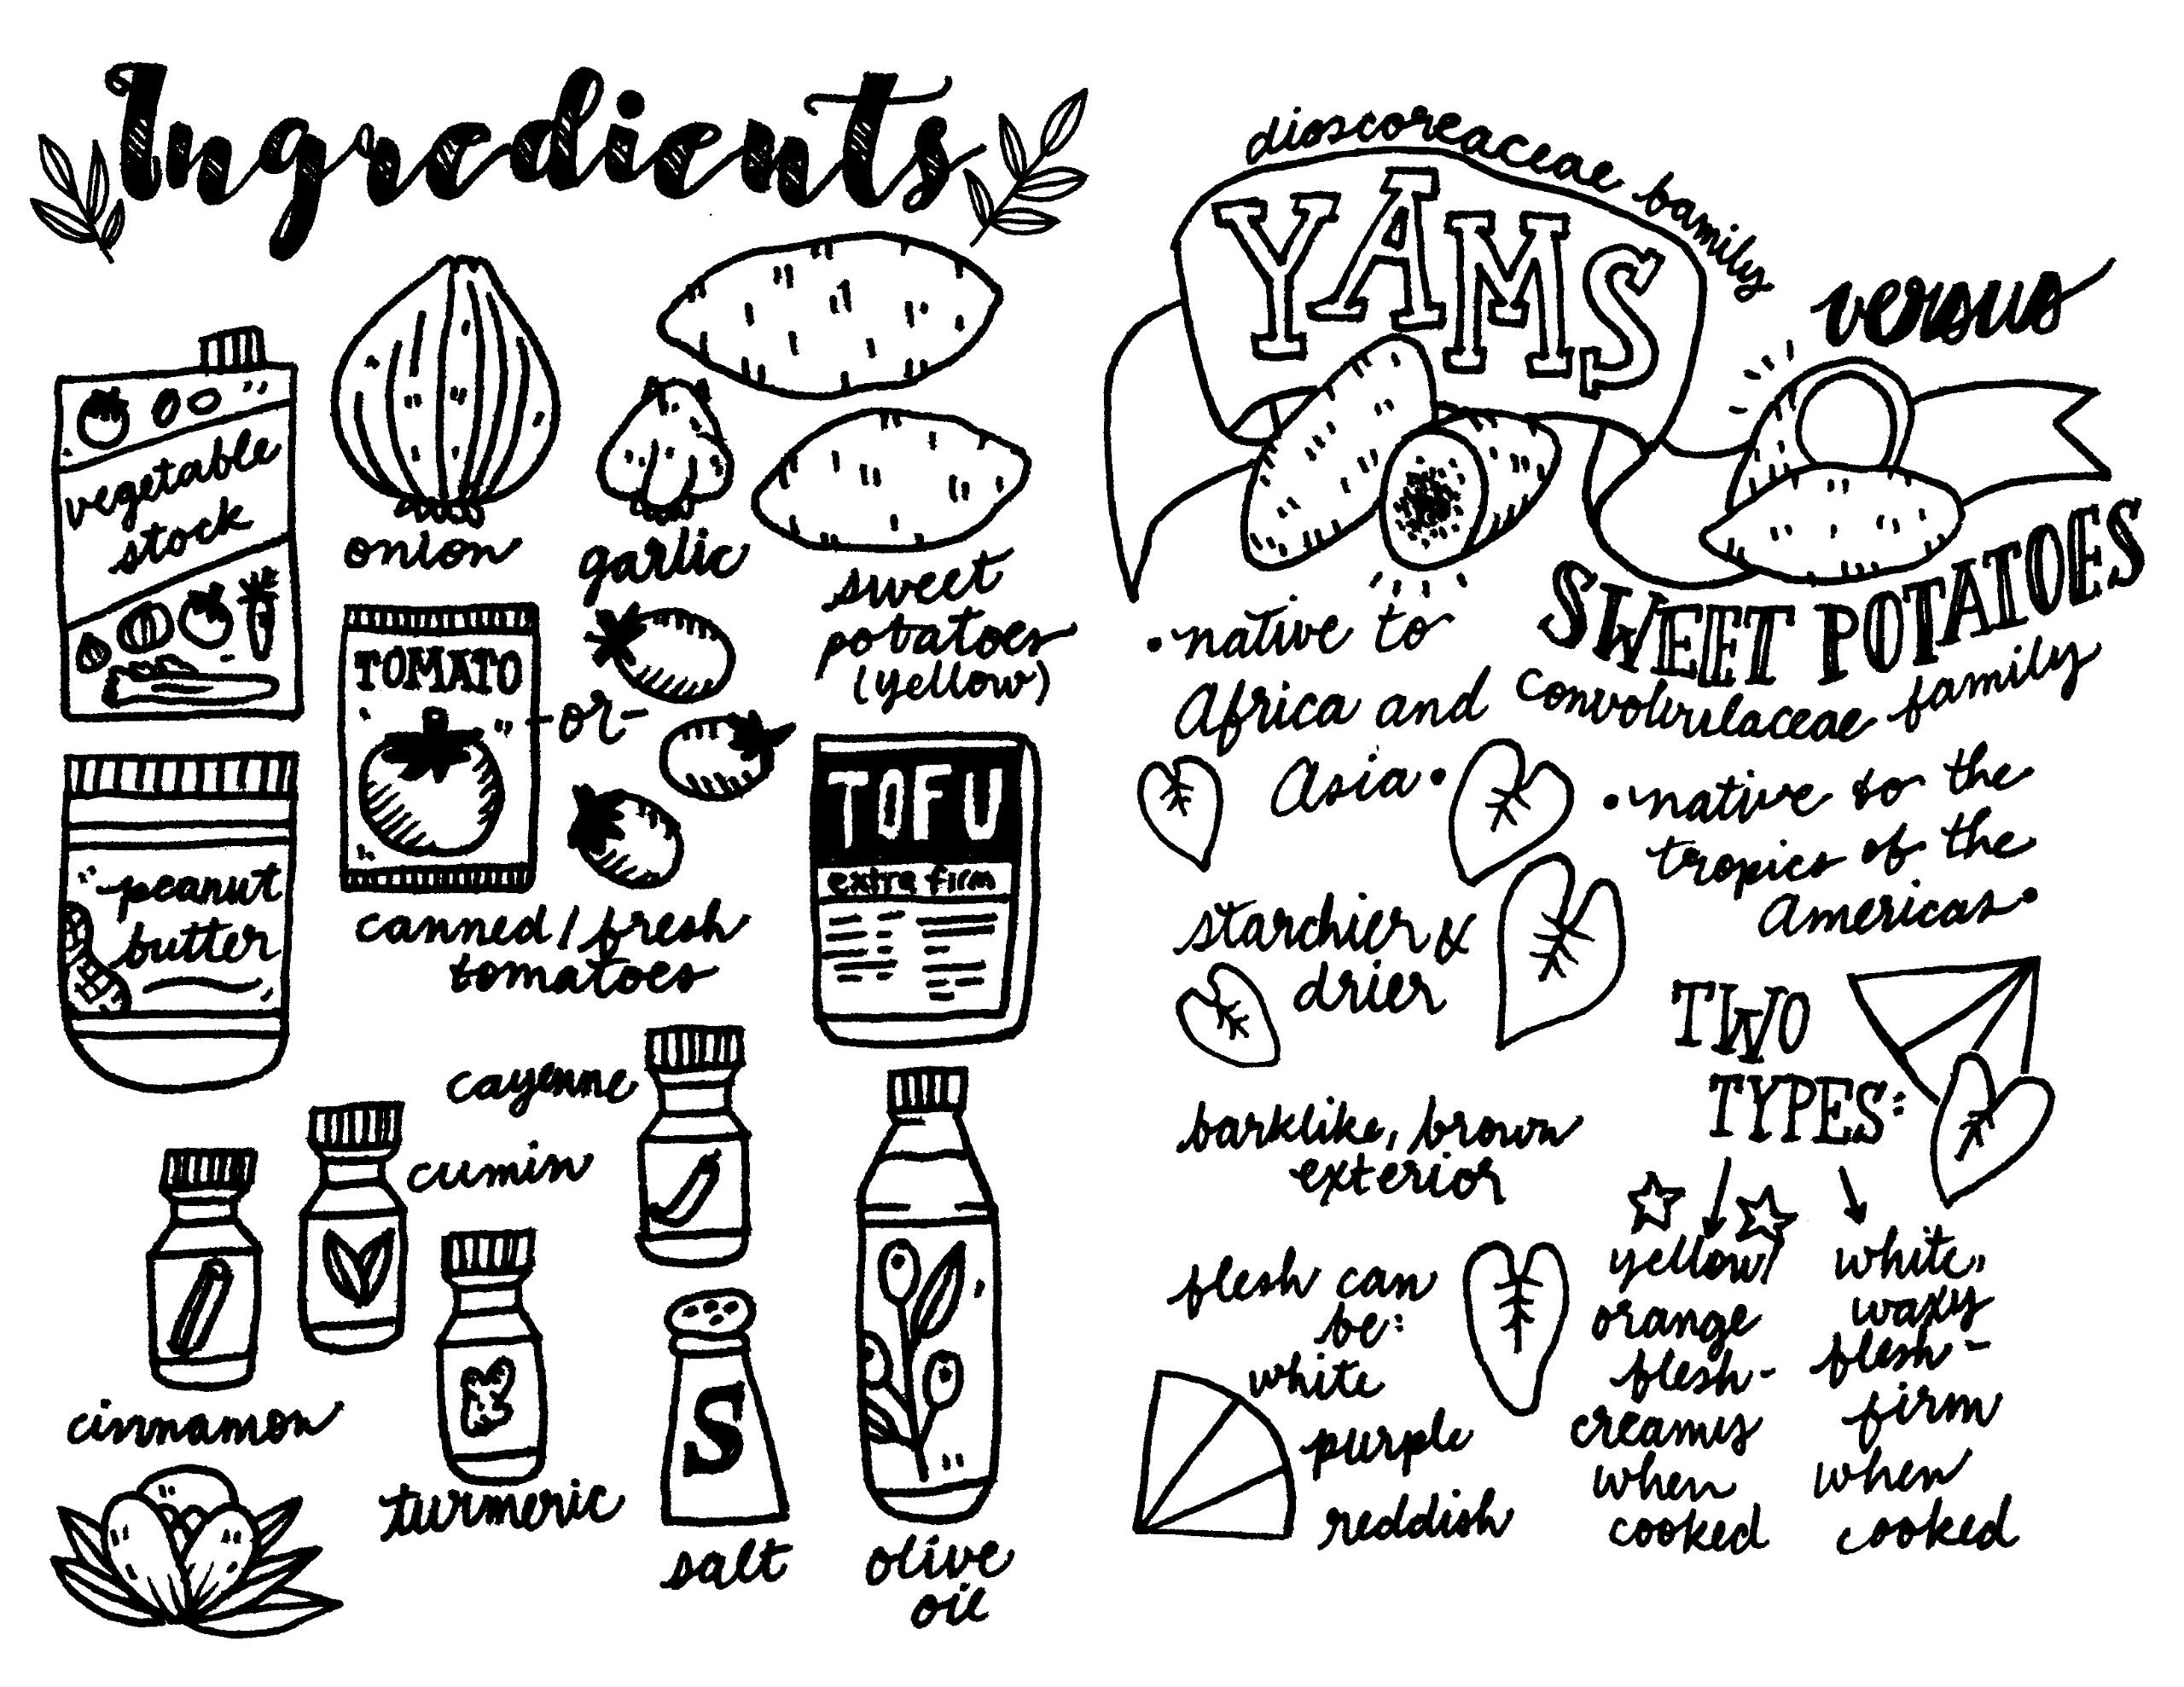 Ingredients
vegetable
stock
onion
garlic
sweet
potatoes
(yellow)
TOMATO
-or-
canned/fresh
tomatoes
TOFU
extra firm
peanut
butter
cayenne
cumin
cinnamon
turmeric
S
salt
olive
oil
dioscoreaceae family
YAMS
versus
SWEET POTATOES
convolvulaceae family
•native to
Africa and
Asia•
starchier &
drier
barklike, brown
exterior
flesh can
be:
white
purple
reddish
•native to the
tropics of the
Americas•
TWO
TYPES:
yellow/
orange
flesh-
creamy
when
cooked
white,
waxy
flesh-
firm
when
cooked